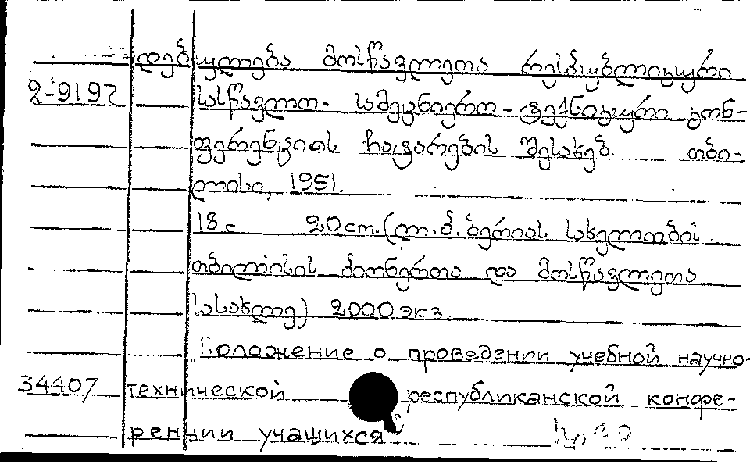 დებულება მოსწავლეთა რესპუბლიკური
2-9197 სასწავლო-სამეცნიერო-ტექნიკური კონ-
ფერენციის ჩატარების შესახებ. თბი-
ლისი, 1951.
18с 20см. (ლ. პ. ბერიას სახელობის
თბილისის პიონერთა და მოსწავლეთა
სასახლე) 2000 экз.
Положение о проведении учебной научно-
34407 технической республиканской конфе-
ренции учащихся